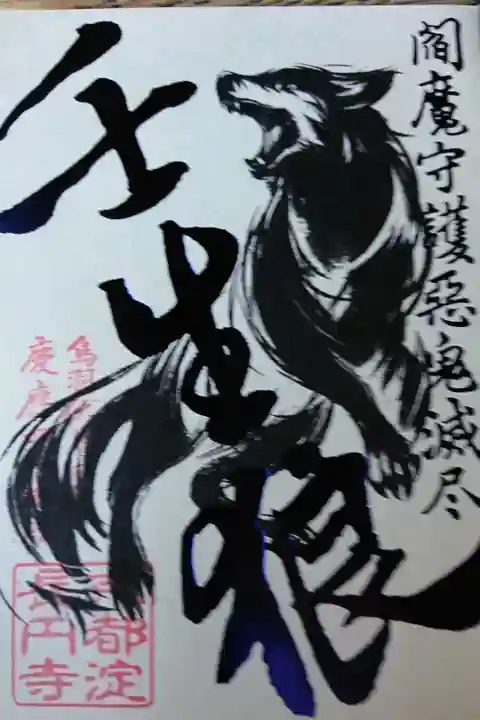 閻魔守護惡鬼滅尽
壬生狼
鳥羽
慶
京都淀
長円寺